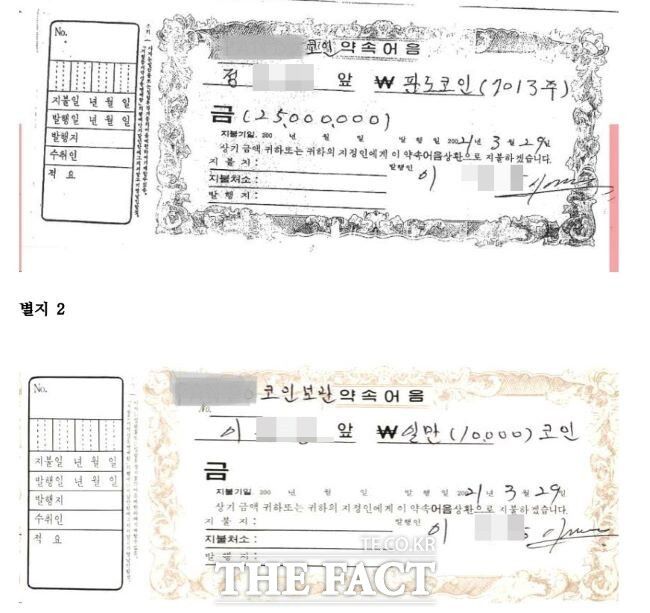 No.
지불일 년 월 일
발행일 년 월 일
발행지
수취인
적 요
코인약속어음
No.
정 앞 ₩ 판도코인(7013주)
금 (25,000,000)
지불기일 200 년 월 일 발행일 2021년 3월 29일
상기 금액 귀하또는 귀하의 지정인에게 이 약속어음상환으로 지불하겠습니다.
지 불 지 : 발행인 이
지불처소 :
발 행 지 :
별지 2
No.
지불일 년 월 일
발행일 년 월 일
발행지
수취인
적 요
코인보관약속어음
No.
이 앞 ₩일만(10,000)코인
금
지불기일 200 년 월 일 발행일 2021년 3월 29일
상기 금액 귀하또는 귀하의 지정인에게 이 약속어음상환으로 지불하겠습니다.
지 불 지 : 발행인 이
지불처소 :
발 행 지 :
TF.CO.KR
THE FACT